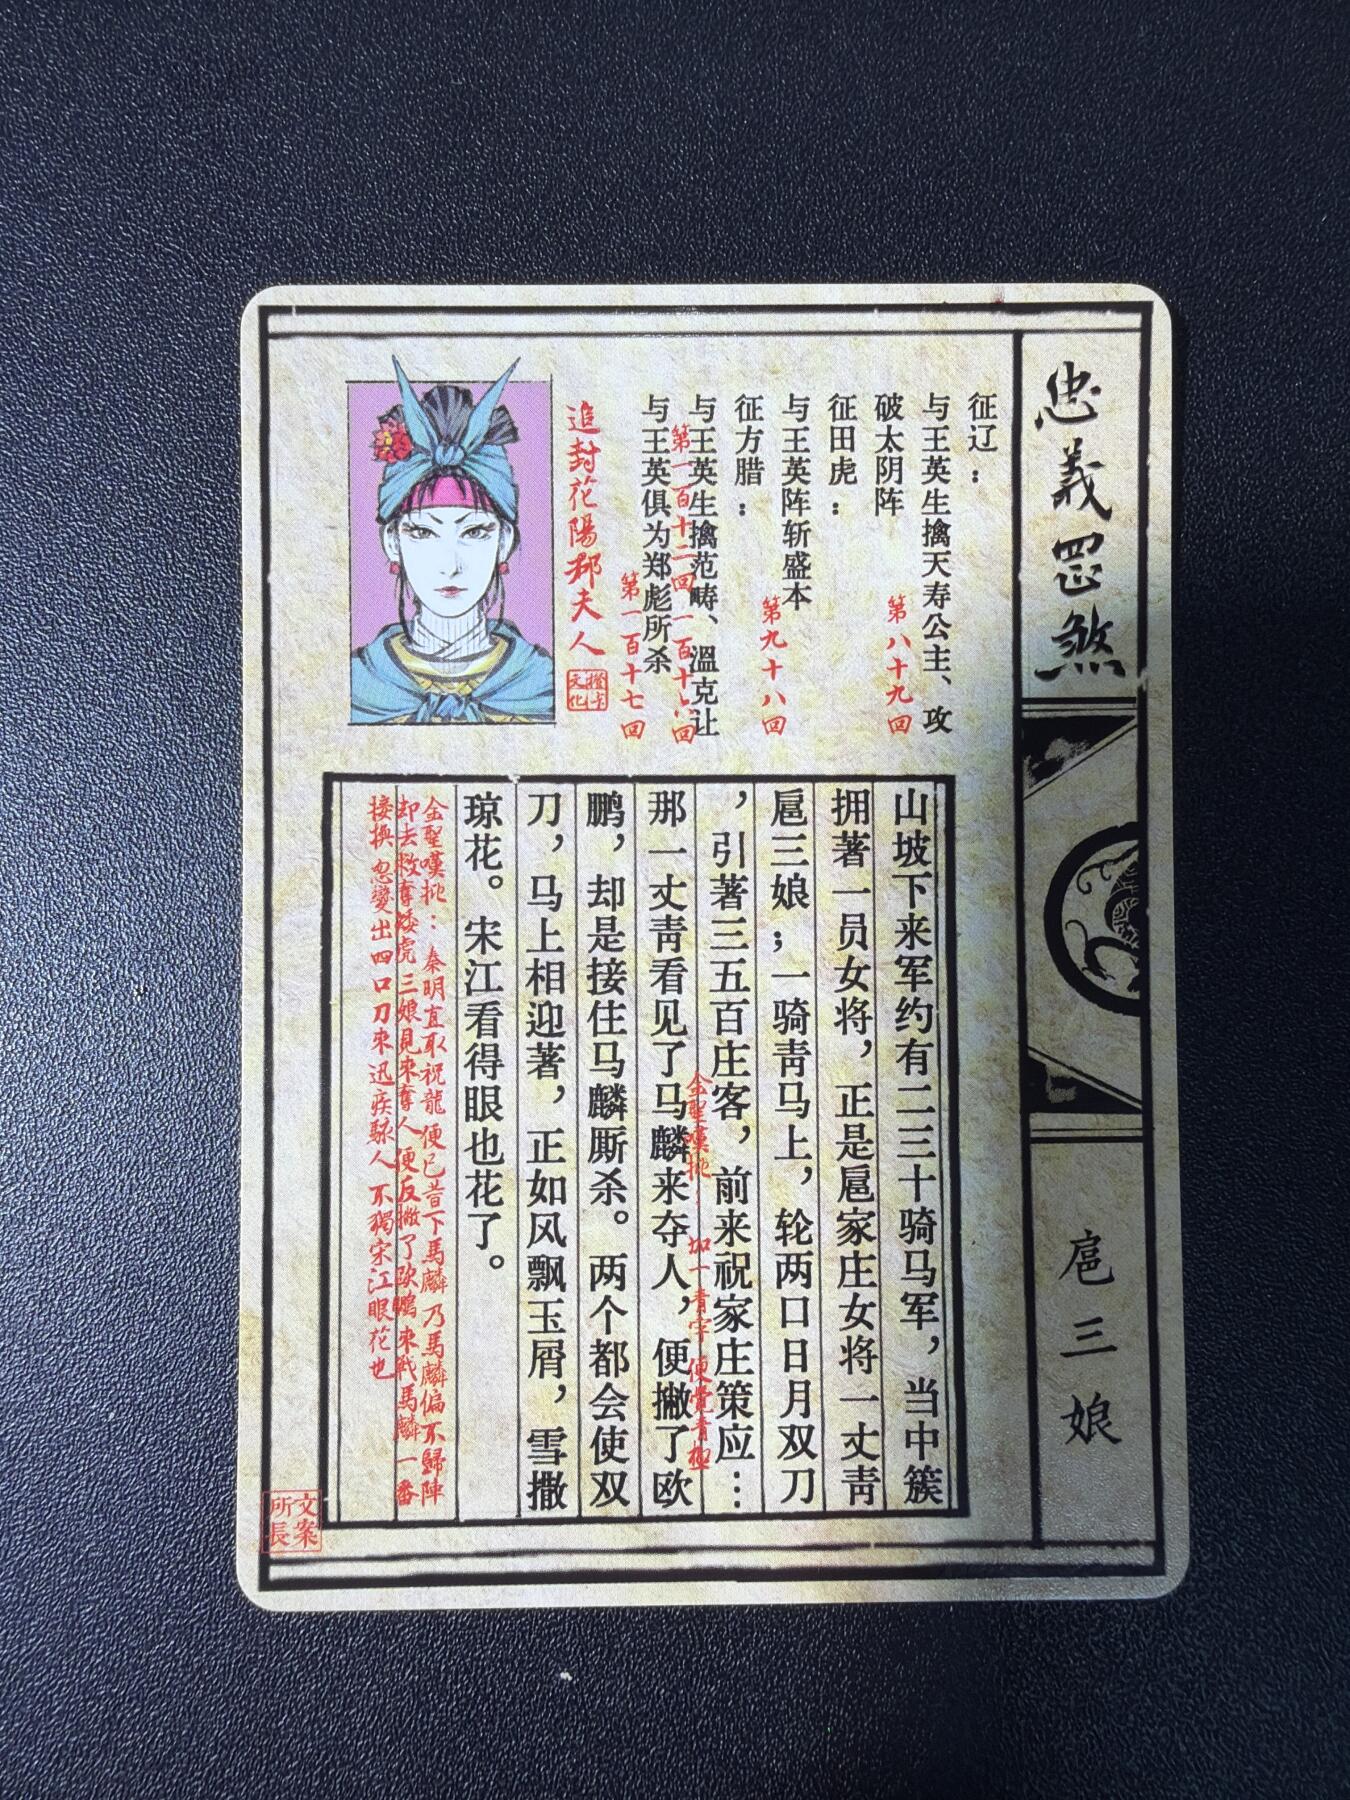 忠義罡煞
扈三娘
征辽：
与王英生擒天寿公主、攻
破太阴阵
第八十九回
征田虎：
与王英阵斩盛本
第九十八回
征方腊：
与王英生擒范畴、温克让
第一百十二回 一百十六回
与王英俱为郑彪所杀
第一百十七回
追封花陽郡夫人
橙卡
文化
山坡下来军约有二三十骑马军，当中簇
拥著一员女将，正是扈家庄女将一丈青
扈三娘；一骑青马上，轮两口日月双刀
，引著三五百庄客，前来祝家庄策应…
金聖嘆批：加一青字 便覺青極
那一丈青看见了马麟来夺人，便撇了欧
鹏，却是接住马麟厮杀。两个都会使双
刀，马上相迎著，正如风飘玉屑，雪撒
琼花。宋江看得眼也花了。
金聖嘆批：秦明直取祝龍 便已替下馬麟 乃馬麟偏不歸陣
却去救奪矮虎 三娘見來奪人 便反撇了歐鵬 來戰馬麟 一番
接换 忽變出四口刀來 迅疾駭人 不獨宋江眼花也
文案
所長